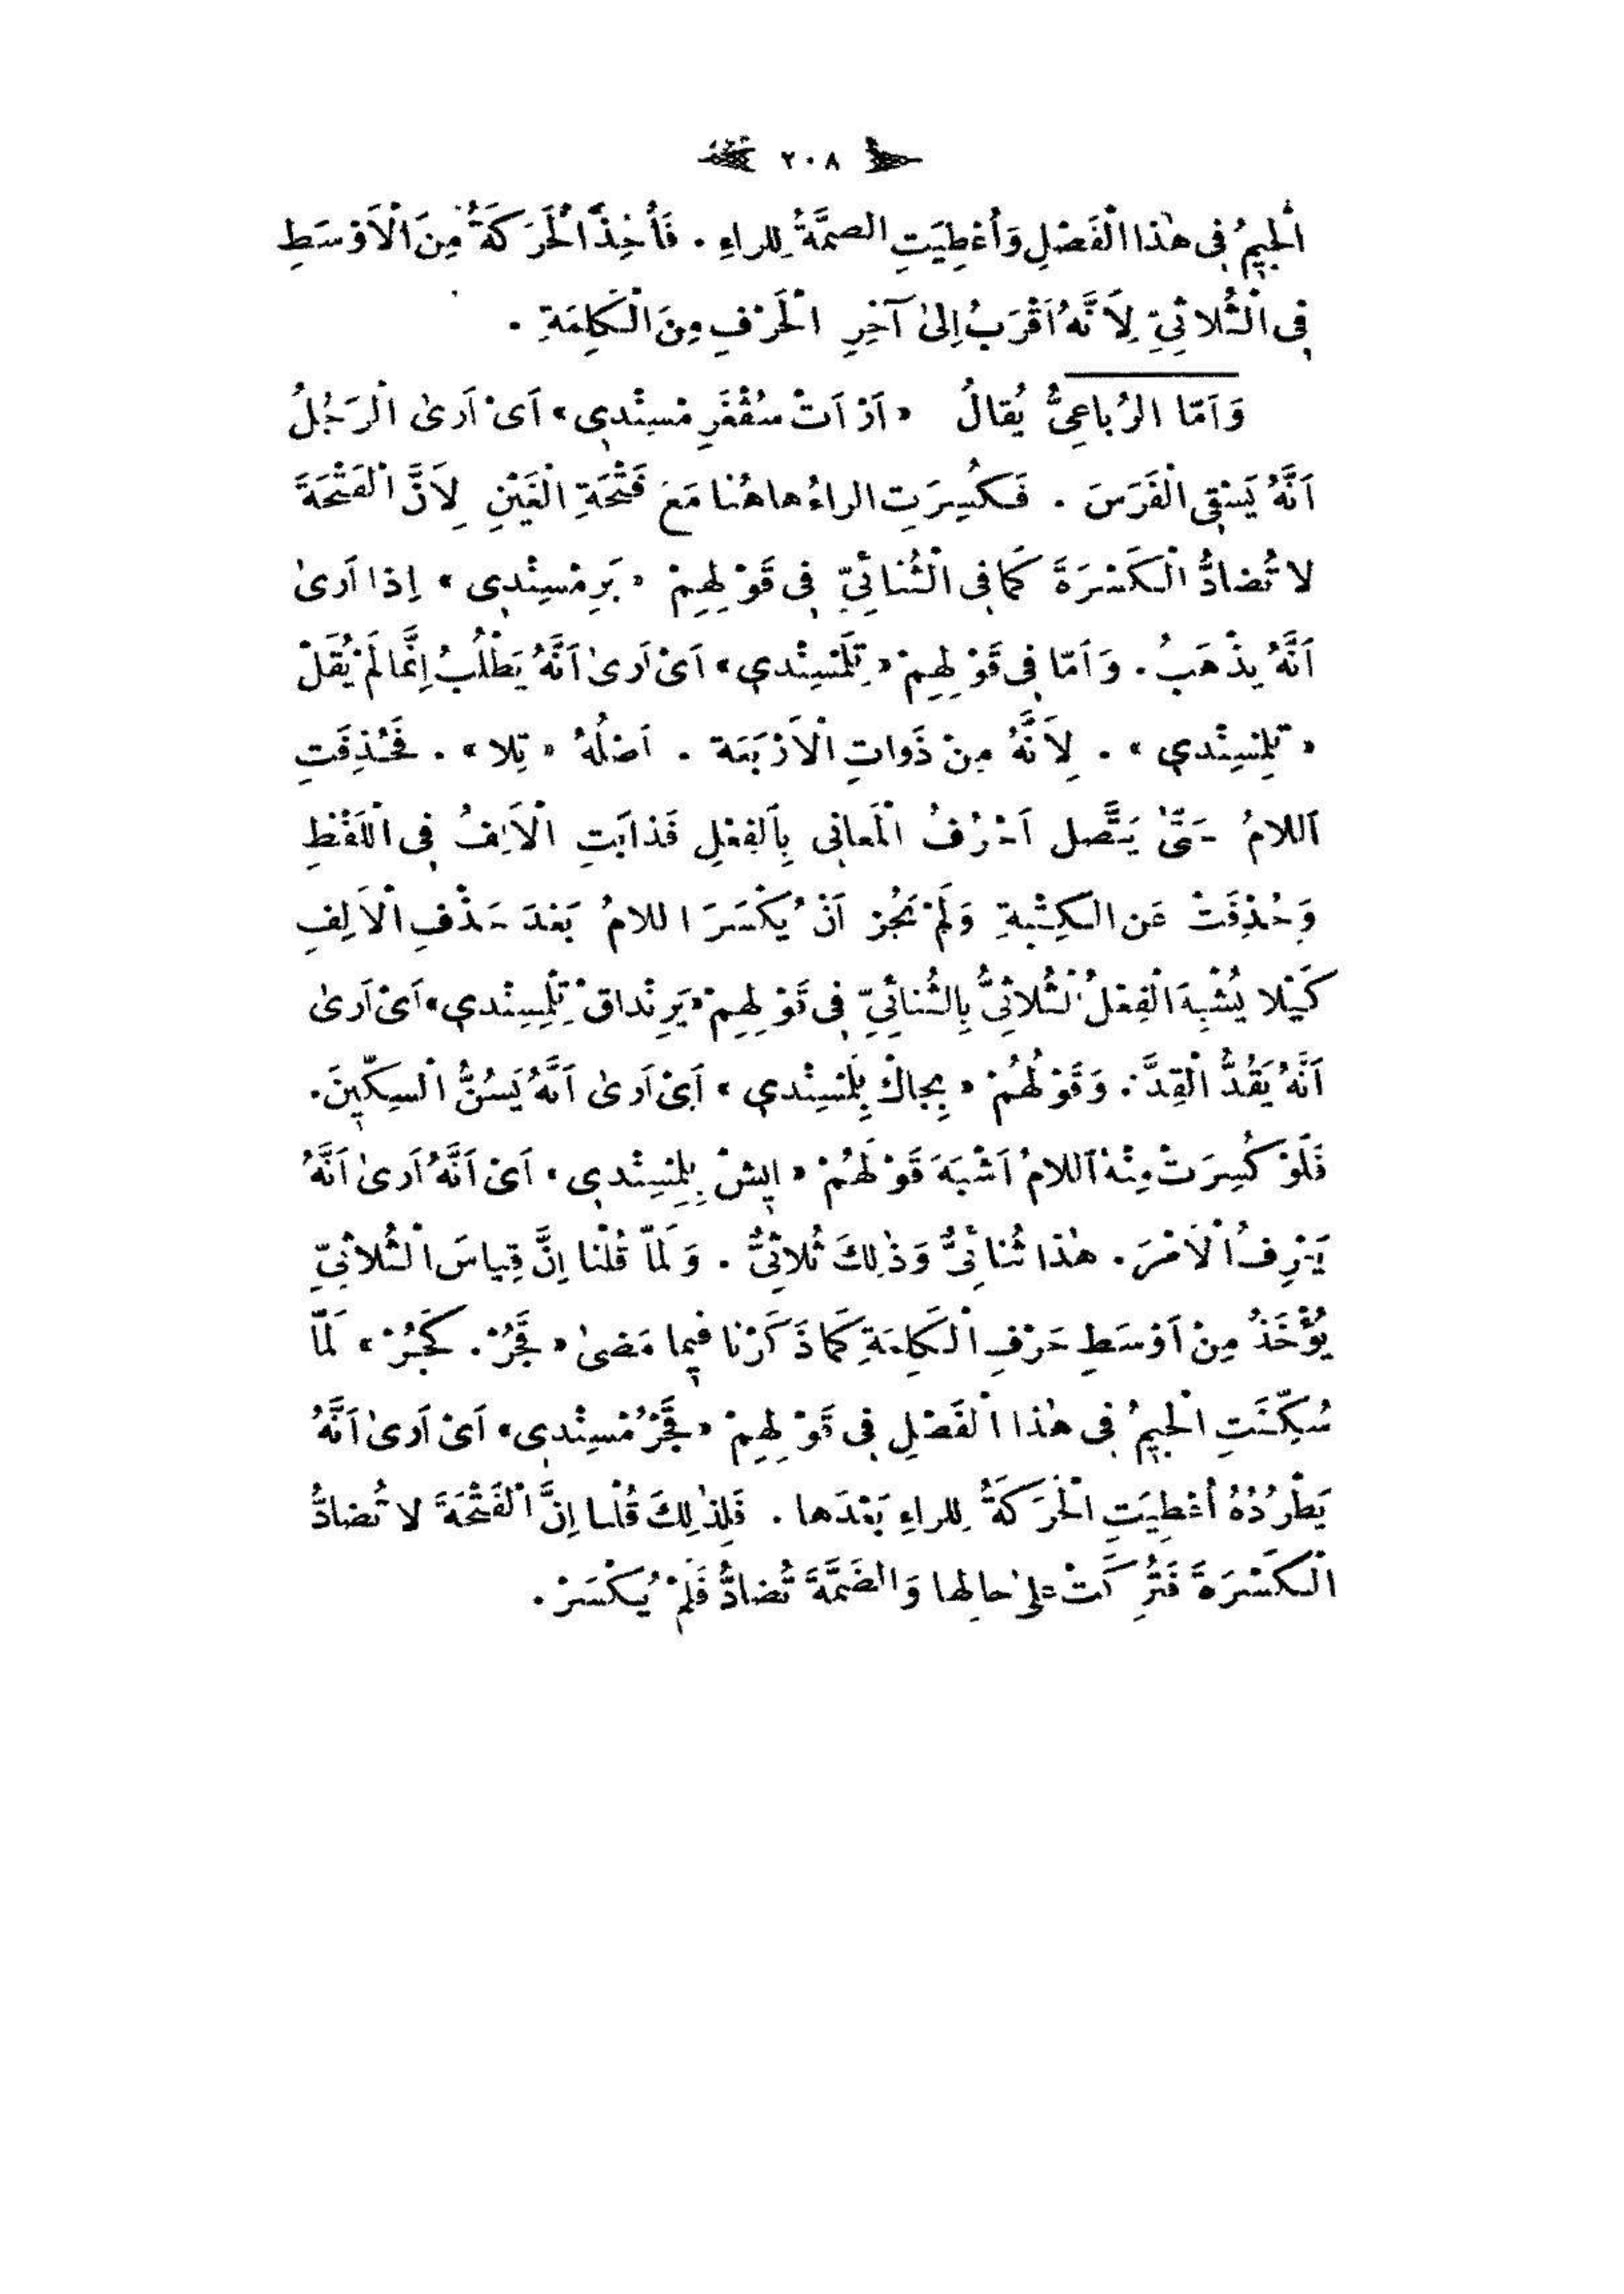 ٢٠٨
اَلْجِيمُ فِى هٰذا الْفَصْلِ وَأُعْطِيَتِ الضمَّةُ لِلراءِ . فَأُخِذَ الْحَرَكَةُ مِنَ الْاَوْسَطِ
فِى الْثُلاثِيِّ لِاَنَّهُ اَقْرَبُ اِلىٰ آخِرِ الْحَرْفِ مِنَ الْكَلِمَةِ .
وَاَمّا الرُباعِىُّ يُقالُ « اَرْ اَتْ سُقْغَرِمْسِنْدِى » اَىْ اَرىٰ الْرَجُلُ
اَنَّهُ يَسْقِى الْفَرَسَ . فَكُسِرَتِ الراءُ هاهُنا مَعَ فَتْحَةِ الْغَيْنِ لِاَنَّ الْفَتْحَةَ
لا تُضادُّ الْكَسْرَةَ كَما فِى الْثُنائِيِّ فِى قَوْلِهِمْ « بَرِمْسِنْدِى » اِذا اَرىٰ
اَنَّهُ يذْهَبُ . وَاَمّا فِى قَوْلِهِمْ « تِلَمْسِنْدِى » اَىْ اَرىٰ اَنَّهُ يَطْلُبُ اِنَّما لَمْ يُقَلْ
« تِلِمْسِنْدِى » . لِاَنَّهُ مِنْ ذَواتِ الْاَرْبَعَة . اَصْلُهُ « تِلا » . فَحُذِفَتِ
اَللامُ حَتّىٰ يَتَّصل اَحْرُفُ الْمَعانِى بِاَلفِعْلِ فَذابَتِ الْاَلِفُ فِى اللَفْظِ
وَحُذِفَتْ عَنِ الكِتْبةِ وَلَمْ نَجُز اَنْ يُكْسَرَ اللامُ بَعْدَ حَذْفِ الْاَلِفِ
كَيْلا يُشْبِهَ الْفِعْلُ الْثُلاثِىُّ بِالثُنائِيِّ فِى قَوْلِهِمْ « يَرِنْداقْ تِلْمِسِنْدِى » اَىْ اَرىٰ
اَنَّهُ يَقُدُّ الْقِدَّ . وَقَوْلُهُمْ « بِجاكْ بِلَمْسِنْدِى » اَىْ اَرىٰ اَنَّهُ يَسُنُّ الْسِكّينَ .
فَلَوْ كُسِرَتْ مِنْهُ اَللامُ اَشْبَهَ قَوْلَهُمْ « ايشْ بِلِمْسِنْدِى » اَىْ اَنَّهُ اَرىٰ اَنَّهُ
يَعْرِفُ الْاَمْرَ . هٰذا ثُنائِىٌّ وَذٰلِكَ ثُلاثِىٌّ . وَلَمّا قُلْنا اِنَّ قِياسَ الْثُلاثِيِّ
يُؤْخَذُ مِنْ اَوْسَطِ حَرْفِ الْكَلِمَةِ كَما ذَكَرْنا فيما مَضىٰ « قَجَرْ . كَجُرْ » لَمّا
سُكِّنَتِ الْجِيمُ فِى هٰذا الْفَصْلِ فِى قَوْلِهِمْ « قَجْرُمْسِنْدِى » اَىْ اَرىٰ اَنَّهُ
يَطْرُدُهُ اُعْطِيَتِ الْحَرَكَةُ لِلراءِ بَعْدَها . فَلِذٰلِكَ قُلْنا اِنَّ الْفَتْحَةَ لا تُضادُّ
الْكَسْرَةَ فَتُرِكَتْ عَلىٰ حالِها وَالضَمَّةَ تُضادُّ فَلَمْ يُكْسَرْ .